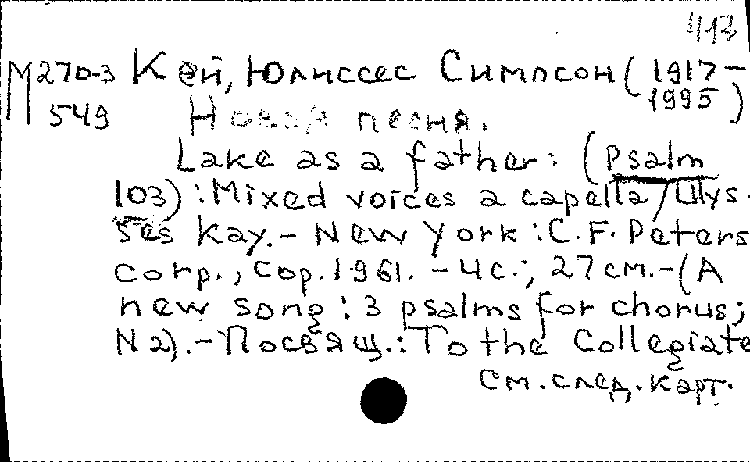 413
М270-3 Кей, Юлиссес Симпсон (1917-
549 1995)
Новая песня.
Lake as a father: (Psalm
103): Mixed voices a capella/Ulys-
ses Kay.- New York: C.F. Peters
corp., cop. 1961. - 4 с.; 27 см.-(A
new song: 3 psalms for chorus;
N 2).-Посвящ.: To the Collegiate
См. след. карт.